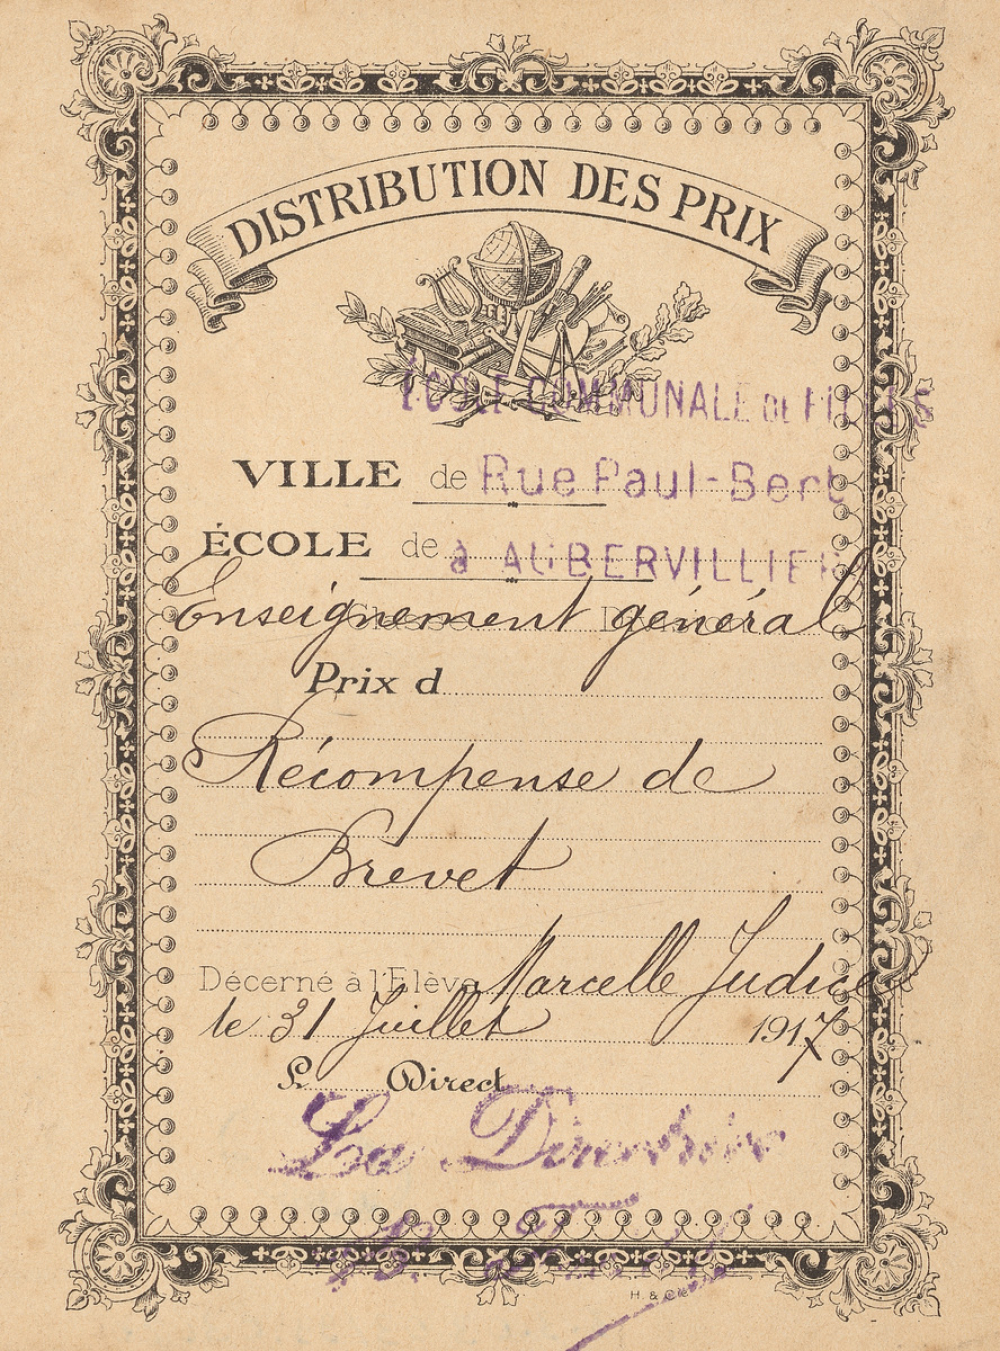 DISTRIBUTION DES PRIX
ÉCOLE COMMUNALE DE FILLES
VILLE de Rue Paul-Bert
ÉCOLE de à AUBERVILLIERS
Enseignement général
Prix d
Récompense de
Brevet
Décerné à l'Elève Marcelle Judices
le 31 Juillet 1917
L Direct
La Directrice
H. & Cie